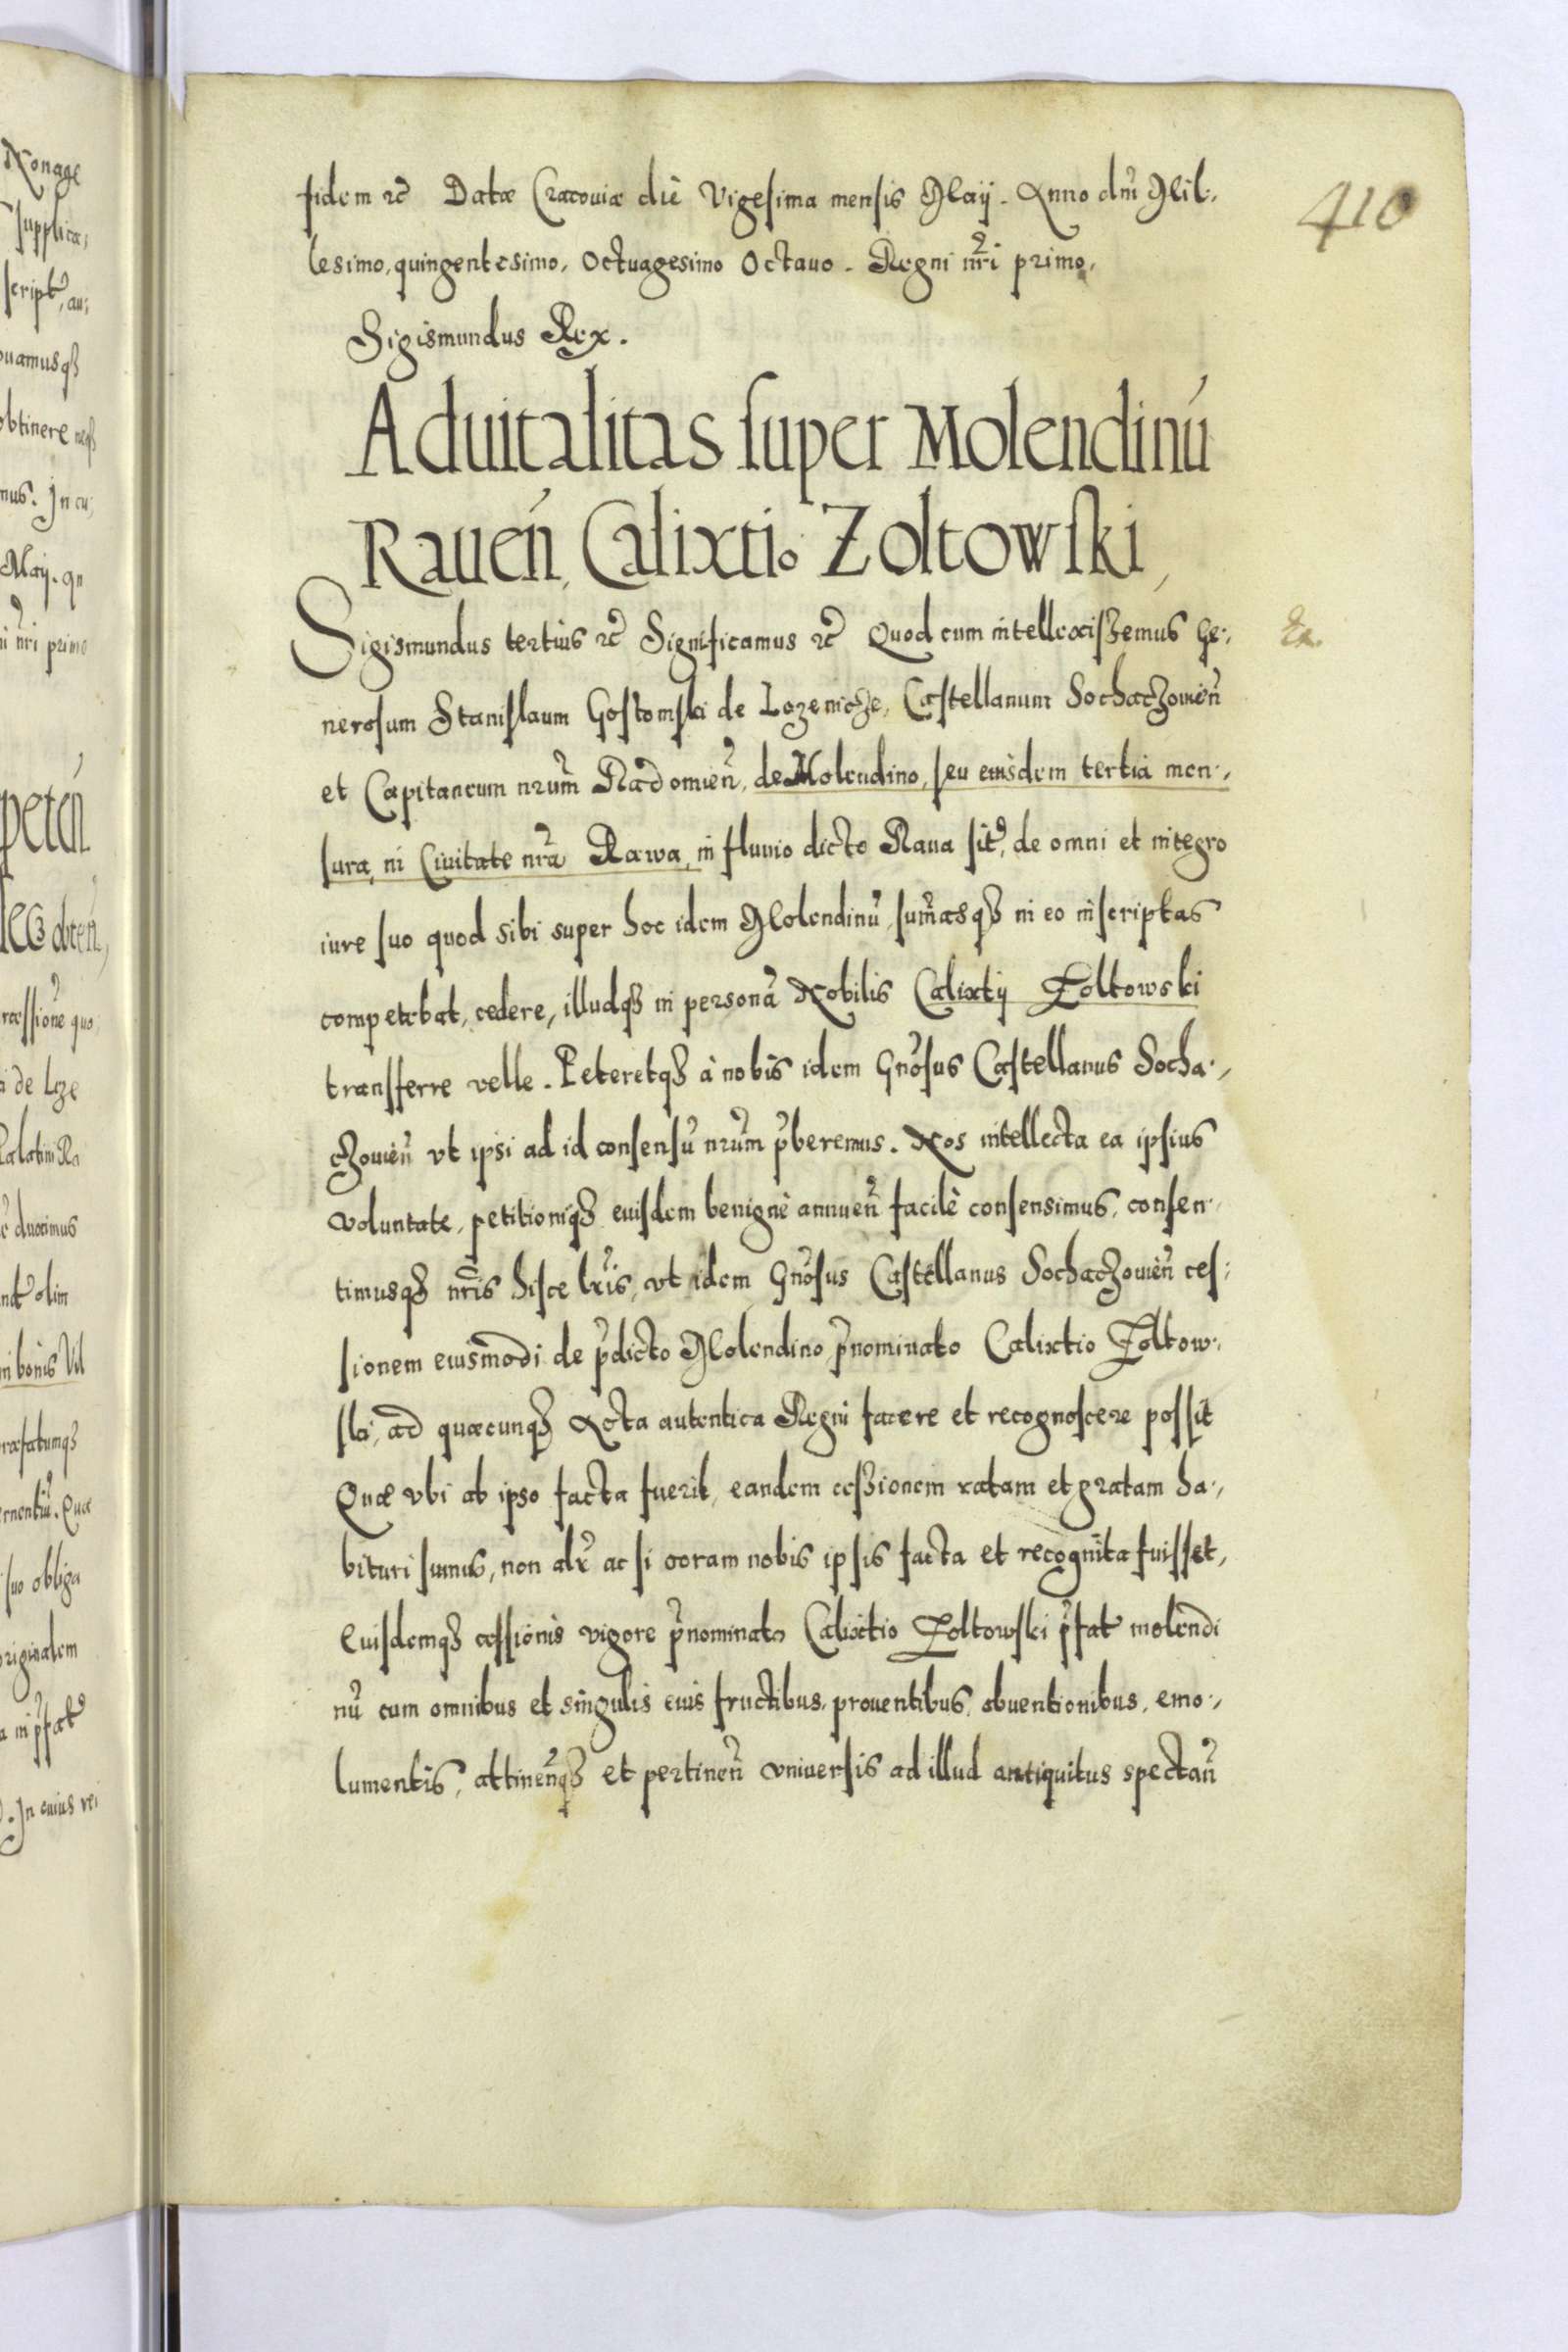 410
fidem etc Datæ Cracouiæ die Vigesima mensis Maij. Anno dni Mil:
lesimo, quingentesimo, Octuagesimo Octauo. Regni nri primo,
Sigismundus Rex.
Aduitalitas super Molendinú
Rauen, Calixtio Zoltowski,
Sigismundus tertius etc Significamus etc Quod cum intellexissemus Ge:
nerosum Stanislaum Gostomski de Lezenicze, Castellanum Sochaczouien
et Capitaneum nrum Radomien, de Molendino, seu eiusdem tertia men:
sura, in Ciuitate nra Rawa, in fluuio dicto Raua sit, de omni et integro
iure suo quod sibi super hoc idem Molendinu, sumasq3 in eo inscriptas
competebat, cedere, illudq3 in persona Nobilis Calixtij Zoltowski
transferre velle. Peteretq3 à nobis idem Gnosus Castellanus Socha:
czouien vt ipsi ad id consensu nrum pberemus. Nos intellecta ea ipsius
voluntate, petitioniq3 eiusdem benignè annuen facilè consensimus, consen:
timusq3 nris hisce lris, vt idem Gnosus Castellanus Sochaczouien ces:
sionem eiusmodi de pdicto Molendino pnominato Calixtio Zoltow:
ski, ad quæcunq3 Acta autentica Regni facere et recognoscere possit
Quæ vbi ab ipso facta fuerit, eandem cessionem ratam et gratam ha:
bituri sumus, non alr ac si coram nobis ipsis facta et recognita fuisset,
Euisdemq3 cessionis vigore pnominato Calixtio Zoltowski pfat molendi
nu cum omnibus et singulis eius fructibus, prouentibus, obuentionibus, emo:
lumentis, attinenq3 et pertinen vniuersis ad illud antiquitus spectan